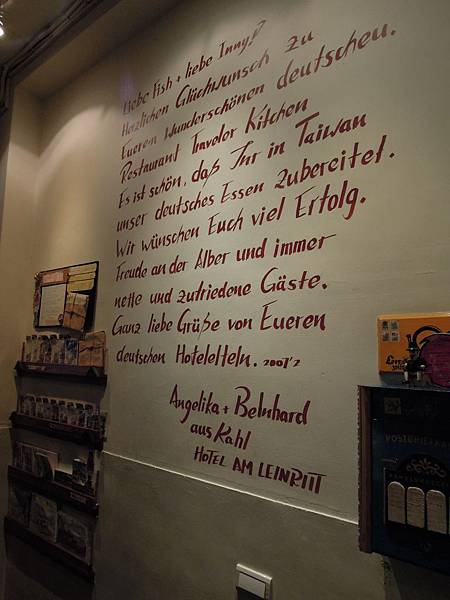 Liebe Fish + liebe Inny!
Herzlichen Glückwunsch zu
Euerem wunderschönen deutschen.
Restaurant Traveler Kitchen
Es ist schön, daß Ihr in Taiwan
unser deutsches Essen zubereitet.
Wir wünschen Euch viel Erfolg.
Freude an der Alber und immer
nette und zufriedene Gäste.
Ganz liebe Grüße von Eueren
deutschen Hoteleltern. 2007'2
Angelika + Belnhard
aus Kahl
HOTEL AM LEINRITT